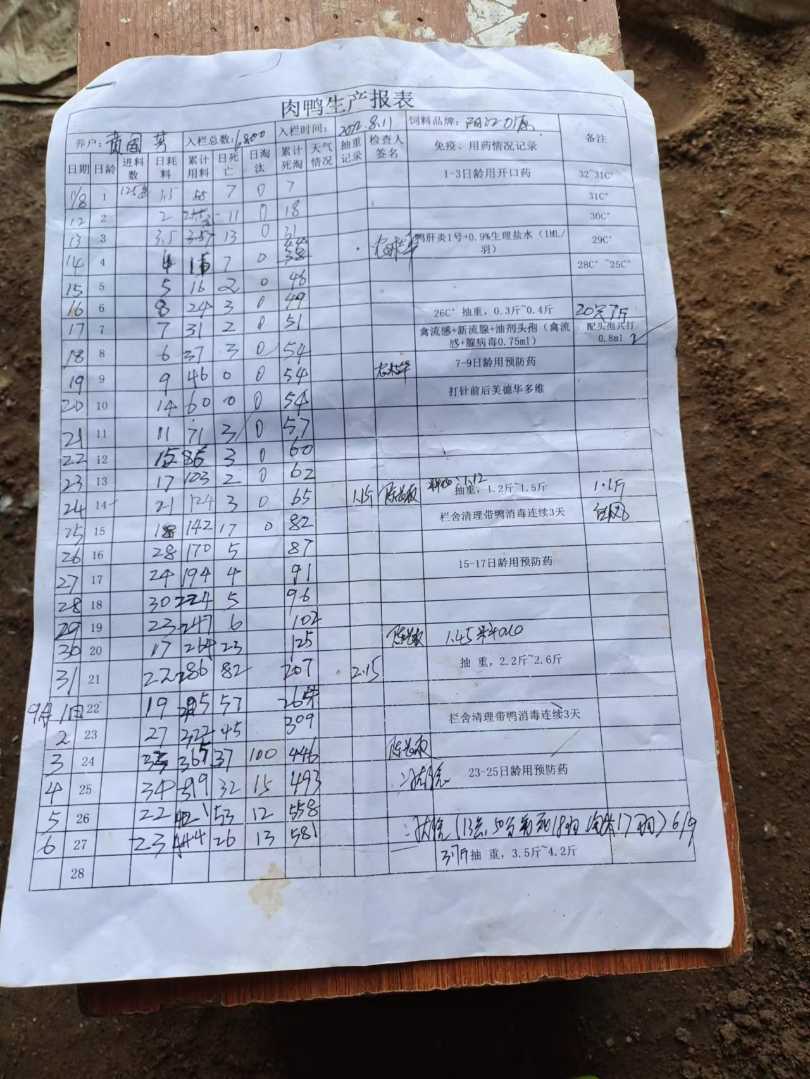 肉鸭生产报表
养户： 入栏总数：6800 入栏时间：2022.8.11 饲料品牌：
日期 日龄 进料数 日耗料 累计用料 日死亡 日淘汰 累计死淘 天气情况 抽重记录 检查人签名 免疫、用药情况记录 备注
1 7 0 7 1-3日龄用开口药 32~31C°
12 2 2 11 0 18 31C°
13 3 3.5 13 0 31 30C°
14 4 4 7 0 38 鸭肝炎1号+0.9%生理盐水（1ML/羽） 29C°
15 5 5 16 2 0 46 28C° ~25C°
16 6 8 24 3 0 49
17 7 7 31 2 0 51 26C° 抽重，0.3斤~0.4斤
18 8 6 37 3 0 54 禽流感+新流腺+油剂头孢（禽流感+腺病毒0.75ml） 0.8ml
19 9 9 46 0 0 54 7-9日龄用预防药
20 10 14 60 0 0 54 打针前后美德华多维
21 11 11 71 3 0 57
22 12 15 86 3 0 60
23 13 17 103 2 0 62
24 14 21 124 3 0 65 1.15 抽重，1.2斤~1.5斤 1.1斤
25 15 18 142 17 0 82 栏舍清理带鸭消毒连续3天
26 16 28 170 5 87
27 17 24 194 4 91 15-17日龄用预防药
28 18 30 224 5 96
29 19 23 247 6 102
30 20 17 264 23 125 1.45
31 21 22 286 82 207 2.15 抽 重，2.2斤~2.6斤
9月1日 22 19 57 264
2 23 27 322 45 309 栏舍清理带鸭消毒连续3天
3 24 35 365 37 100 446
4 25 34 32 15 493 23-25日龄用预防药
5 26 22 53 12 558
6 27 23 444 26 13 581 6/9
28 3.7斤 抽 重，3.5斤~4.2斤